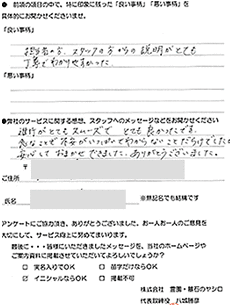 ● 前項の項目の中で、特に印象に残った「良い事柄」「悪い事柄」を
具体的にお聞かせくださいませ。
「良い事柄」
担当者の方、スタッフの方からの説明がとても
丁寧でわかりやすかった。
「悪い事柄」
●弊社のサービスに関する感想、スタッフへのメッセージなどをお聞かせください
進行がとてもスムーズで とても良かったです。
急なことで不安がいっぱいでわからないことだらけでしたが
安心しておまかせできました。ありがとうございました。
〒
ご住所
氏名
※無記名でも結構です
アンケートにご協力頂き、ありがとうございました。お一人お一人のご意見を
大切にして、サービス向上に努めてまいります。
最後に・・・皆様にいただきましたメッセージを、当社のホームページや
ご案内資料に掲載させていただいてよろしいでしょうか?
□ 実名入りでOK □ 苗字だけならOK
☑ イニシャルならOK □ 掲載不可
株式会社 霊園・墓石のヤシロ
代表取締役 八城勝彦